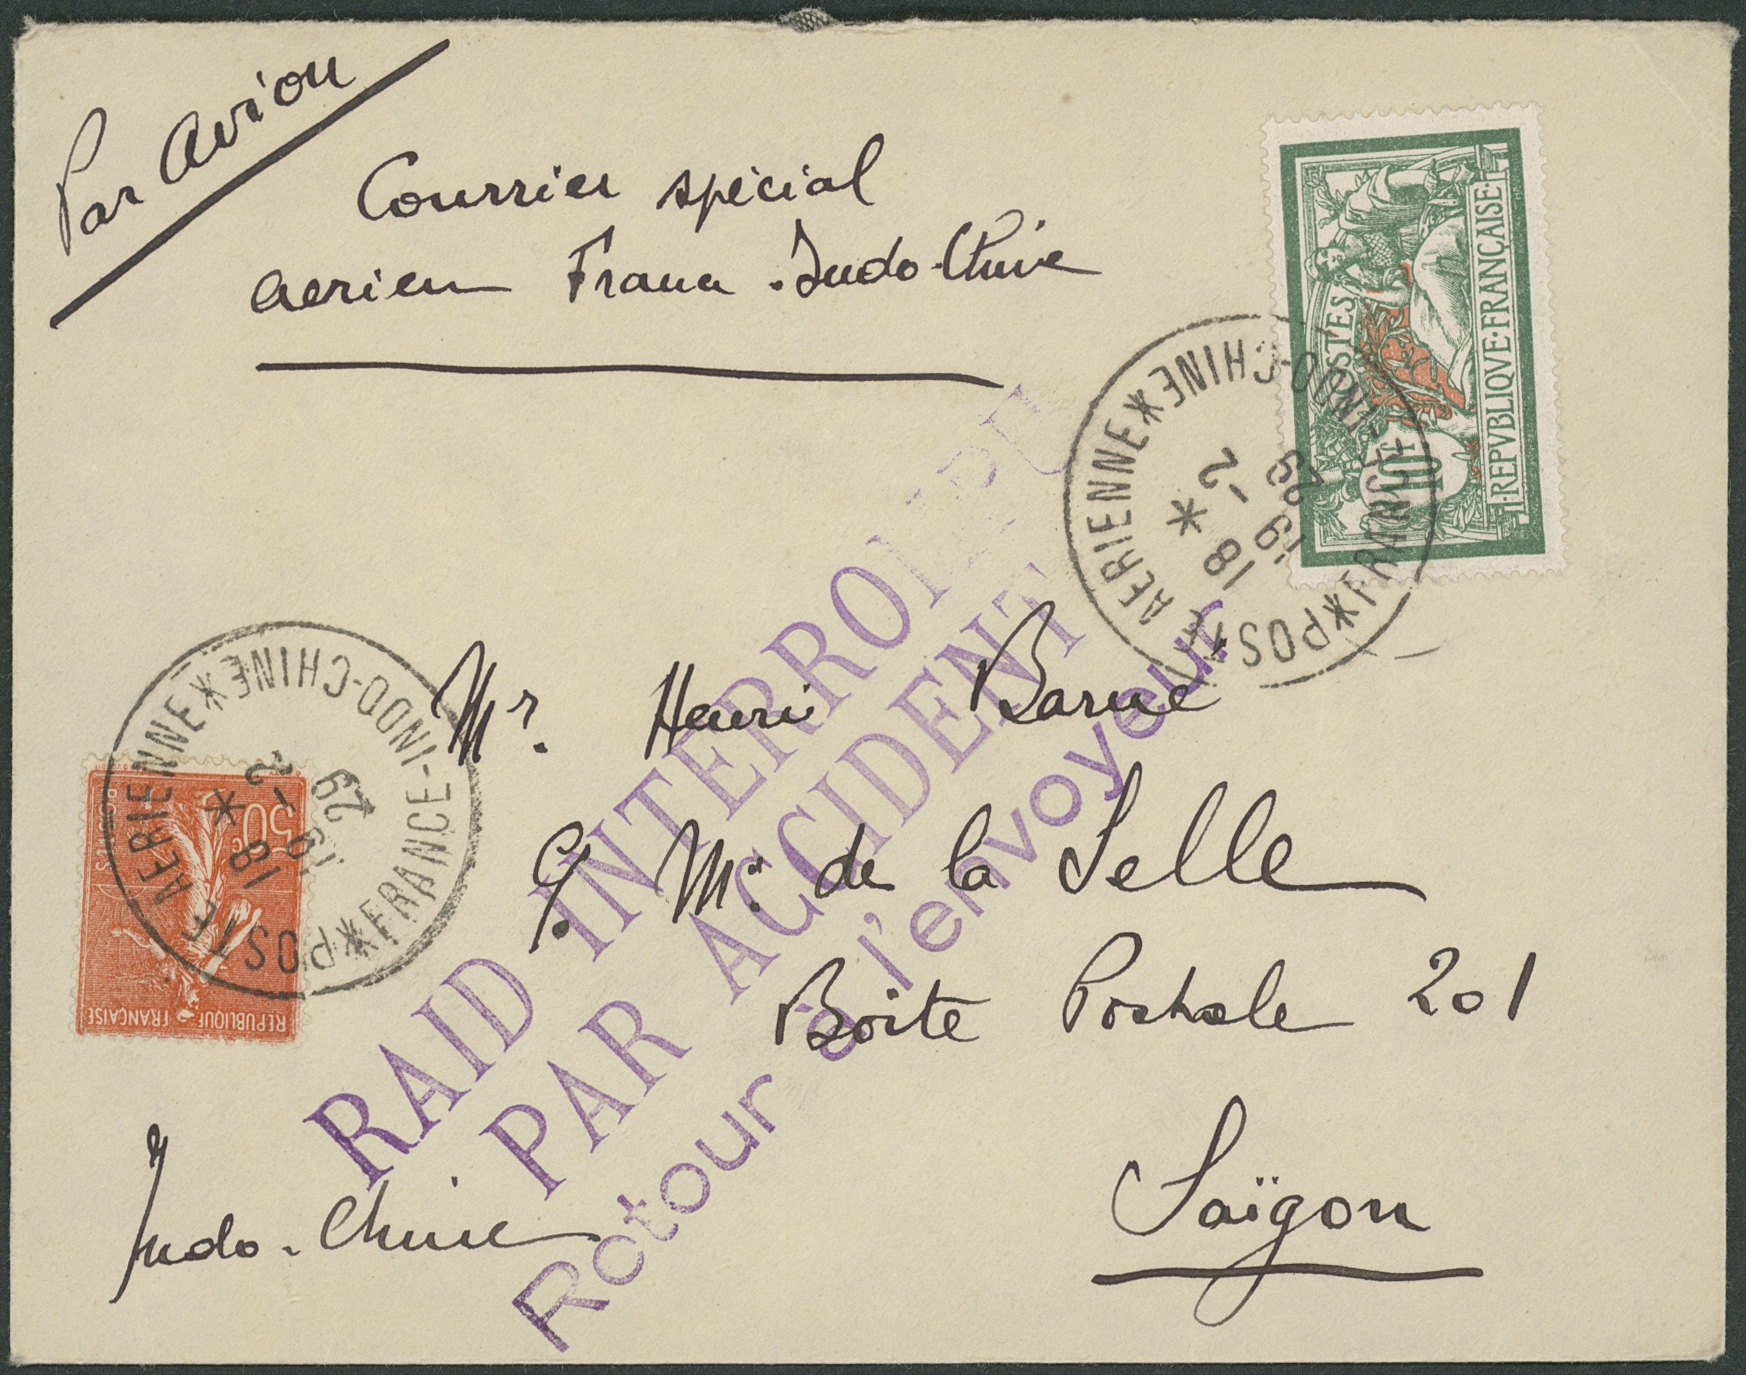 Par Avion
Courrier spécial
aerien France-Indo-Chine
POSTES
10F
REPVBLIQVE·FRANÇAISE
*FRANCE-INDO-CHINE*
POSTE AERIENNE
*
18 -2
19 29
50c
POSTES
REPUBLIQUE FRANÇAISE
*FRANCE-INDO-CHINE*
POSTE AERIENNE
*
18 -2
19 29
RAID INTERROMPU
PAR ACCIDENT
Retour à l'envoyeur
Mr. Henri Barue
de la Selle
Boite Postale 201
Saïgon
Indo-Chine